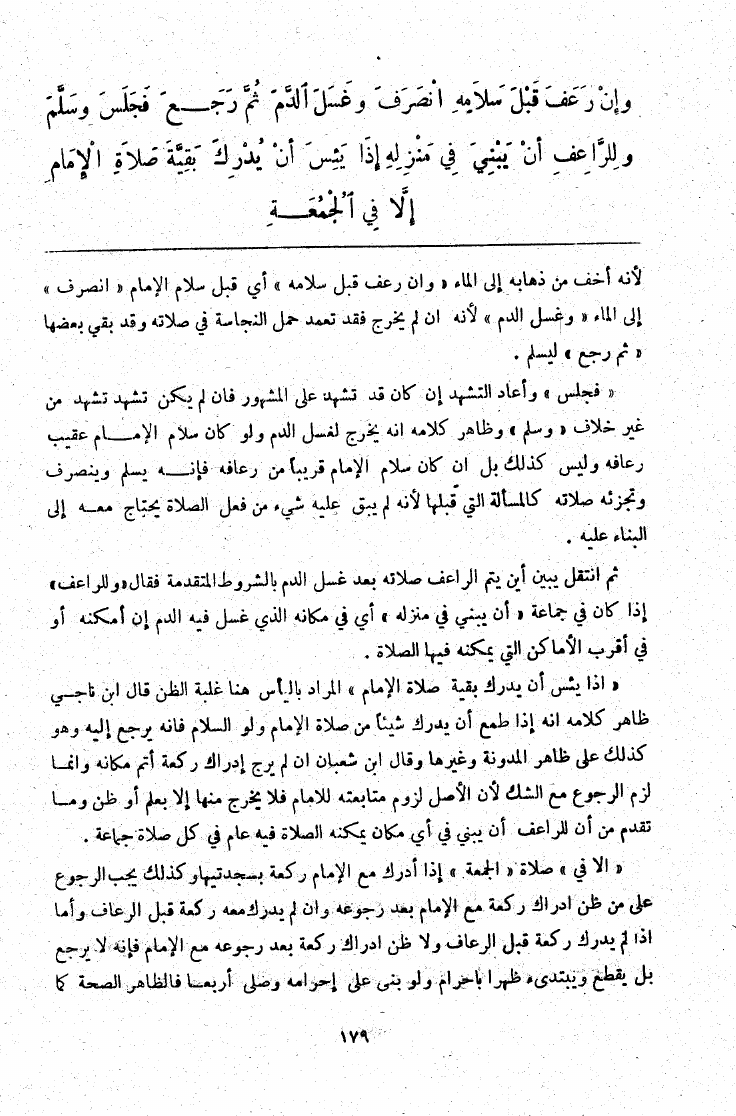 وَإِنْ رَعَفَ قَبْلَ سَلَامِهِ انْصَرَفَ وَغَسَلَ ٱلدَّمَ ثُمَّ رَجَـــعَ فَجَلَسَ وسَلَّمَ
وللرَّاعِفِ أَنْ يَبْنِيَ فِي مَنْزِلِهِ إِذَا يَئِسَ أَنْ يُدْرِكَ بَقِيَّةَ صَلَاةِ الْإِمَامِ
إِلَّا فِي ٱلْجُمُعَـــةِ
لأنه أخف من ذهابه إلى الماء « وان رعف قبل سلامه » أي قبل سلام الإمام « انصرف »
إلى الماء « وغسل الدم » لأنه ان لم يخرج فقد تعمد حمل النجاسة في صلاته وقد بقي بعضها
« ثم رجع » ليسلم .
« فجلس » وأعاد التشهد إن كان قد تشهد على المشهور فان لم يكن تشهد تشهد من
غير خلاف « وسلم » وظاهر كلامه انه يخرج لغسل الدم ولو كان سلام الإمـــام عقيب
رعافه وليس كذلك بل ان كان سلام الإمام قريباً من رعافه فإنـــه يسلم وينصرف
وتجزئه صلاته كالمسألة التي قبلها لأنه لم يبق عليه شيء من فعل الصلاة يحتاج معـــه إلى
البناء عليه .
ثم انتقل يبين أين يتم الراعف صلاته بعد غسل الدم بالشروط المتقدمة فقال «وللراعف»
إذا كان في جماعة « أن يبني في منزله » أي في مكانه الذي غسل فيه الدم إن أمكنه أو
في أقرب الأماكن التي يمكنه فيها الصلاة .
« اذا يئس أن يدرك بقية صلاة الإمام » المراد باليأس هنا غلبة الظن قال ابن ناجـــي
ظاهر كلامه انه إذا طمع أن يدرك شيئاً من صلاة الإمام ولو السلام فانه يرجع إليه وهو
كذلك على ظاهر المدونة وغيرها وقال ابن شعبان ان لم يرج إدراك ركعة أتم مكانه وانمـــا
لزم الرجوع مع الشك لأن الأصل لزوم متابعته للامام فلا يخرج منها إلا بعلم أو ظن ومـــا
تقدم من أن للراعف أن يبني في أي مكان يمكنه الصلاة فيه عام في كل صلاة جماعة .
« الا في » صلاة « الجمعة » إذا أدرك مع الإمام ركعة بسجدتيها وكذلك يجب الرجوع
على من ظن ادراك ركعة مع الإمام بعد رجوعه وان لم يدرك معه ركعة قبل الرعاف وأما
اذا لم يدرك ركعة قبل الرعاف ولا ظن ادراك ركعة بعد رجوعه مع الإمام فإنه لا يرجع
بل يقطع ويبتدىء ظهرا باحرام ولو بنى على إحرامه وصلى أربعـــا فالظاهر الصحة كما
١٧٩